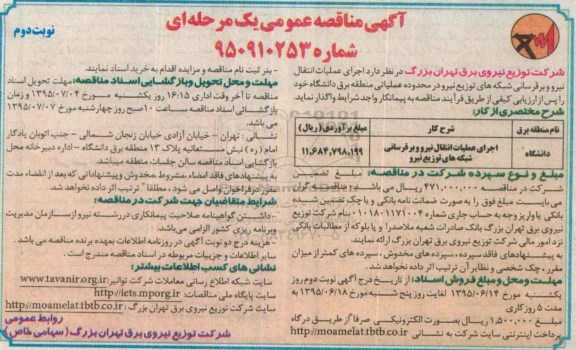 آگهی مناقصه عمومی یک مرحله‌ای
شماره ۹۵۰۹۱۰۲۵۳
نوبت دوم
شرکت توزیع نیروی برق تهران بزرگ در نظر دارد اجرای عملیات انتقال
نیرو و برفرسانی شبکه های توزیع نیرو در محدوده عملیاتی منطقه برق دانشگاه خود
را پس از ارزیابی کیفی از طریق فرآیند مناقصه به پیمانکار واجد شرایط واگذار نماید.
شرح مختصری از کار:
نام منطقه برق
شرح کار
مبلغ برآوردی (ریال)
دانشگاه
اجرای عملیات انتقال نیرو و برفرسانی
شبکه های توزیع نیرو
۱۱,۶۸۴,۷۹۸,۱۹۹
مبلغ و نوع سپرده شرکت در مناقصه: مبلغ تضمین
شرکت در مناقصه ۴۷۱,۰۰۰,۰۰۰ ریال می باشد. مناقصه گران
می بایست مبلغ فوق را به صورت ضمانت نامه بانکی و یا چک تضمین شده
بانکی یا واریز وجه به حساب جاری شماره ۰۱۰۱۸۰۱۱۷۱۰۰۴ بنام شرکت توزیع
نیروی برق تهران بزرگ بانک صادرات شعبه ملاصدرا و یا بلوکه از مطالبات بانکی
نزد امور مالی شرکت توزیع نیروی برق تهران بزرگ ارائه نمایند.
به پیشنهادهای فاقد سپرده، سپرده های مخدوش، سپرده های کمتر از میزان
مقرر، چک شخصی و نظایر آن ترتیب اثر داده نخواهد شد.
مهلت و محل و مبلغ فروش اسناد: از تاریخ درج آگهی نوبت دوم روز
یکشنبه مورخ ۱۳۹۵/۰۶/۱۴ لغایت روز پنج شنبه مورخ ۱۳۹۵/۰۶/۱۸ به
مدت ۵ روز کاری
مبلغ ۱,۵۰۰,۰۰۰ ریال بصورت الکترونیکی صرفاً از طریق درگاه
پرداخت اینترنتی سایت شرکت به نشانی http://moamelat.tbtb.co.ir
- بنر ثبت نام مناقصه و مزایده اقدام به خرید اسناد نمایند.
مهلت و محل تحویل و بازگشایی اسناد مناقصه: مهلت تحویل اسناد
مناقصه تا آخر وقت اداری ۱۶:۱۵ روز یکشنبه مورخ ۱۳۹۵/۰۷/۰۴ و زمان
بازگشائی اسناد مناقصه ساعت ۱۰ صبح روز چهارشنبه مورخ ۱۳۹۵/۰۷/۰۷
می باشد.
نشانی: تهران - خیابان آزادی خیابان زنجان شمالی - جنب اتوبان یادگار
امام (ره) نبش سمنانیه پلاک ۱۳ منطقه برق دانشگاه - اداره دبیرخانه محل
بازگشایی اسناد مناقصه سالن جلسات منطقه میباشد.
به پیشنهادهای فاقد امضاء، مشروط، مخدوش و پیشنهاداتی که بعد از انقضاء مدت
مقرر در فراخوان واصل می شود، مطلقاً ترتیب اثر داده نخواهد شد.
شرایط متقاضیان جهت شرکت در مناقصه:
- داشتن گواهینامه صلاحیت پیمانکاری در رشته نیرو از سازمان مدیریت
و برنامه ریزی کشور الزامی می باشد.
- هزینه درج دو نوبت آگهی در روزنامه اطلاعات بعهده برنده مناقصه می باشد.
سایر اطلاعات و جزییات مربوطه در اسناد مناقصه مندرج است.
نشانی های کسب اطلاعات بیشتر:
سایت شبکه اطلاع رسانی معاملات شرکت توانیر: www.tavanir.org.ir
سایت پایگاه ملی مناقصات: http://iets.mporg.ir
سایت شرکت توزیع نیروی برق تهران بزرگ: http://moamelat.tbtb.co.ir
روابط عمومی
شرکت توزیع نیروی برق تهران بزرگ (سهامی خاص)